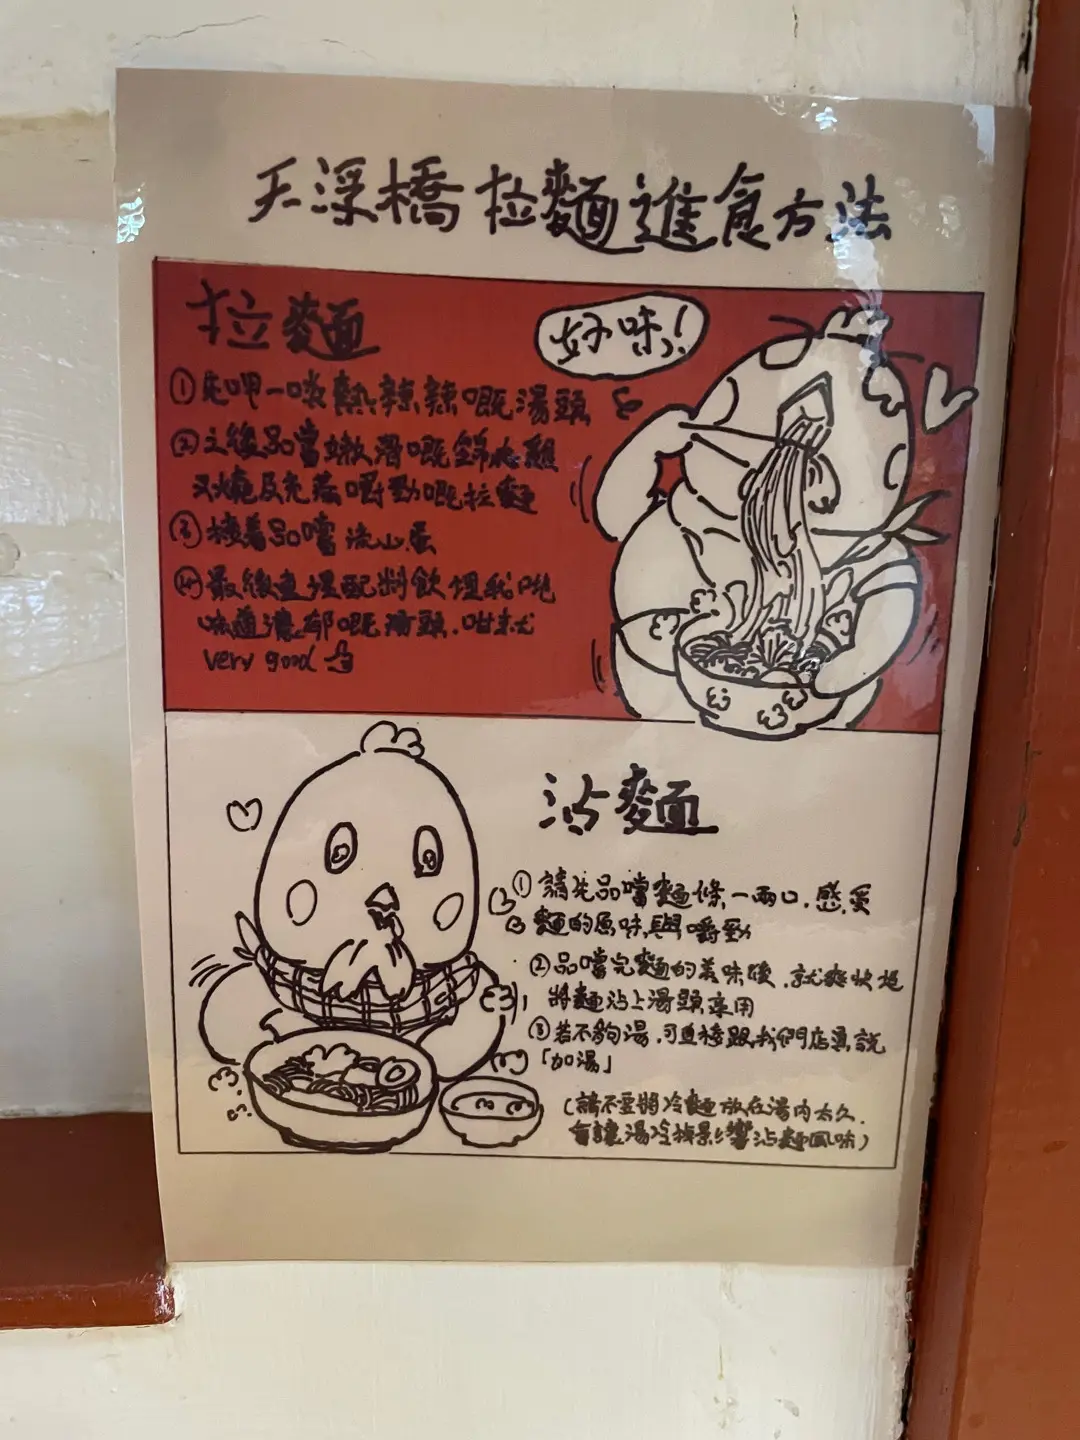 天深橋拉麵進食方法
拉麵
好味!
①先呷一啖熱辣辣嘅湯頭
②之後品嘗嫩滑嘅 雞
叉燒及 嚼勁嘅拉麵
③接着品嚐流心蛋
④最後查埋配料飲埋我哋
味道濃郁嘅湯頭.咁就
very good
沾麵
①請先品嚐麵條一兩口.感受
麵的原味與嚼勁
②品嚐完麵的美味後.就爽快地
將麵沾上湯頭享用
③若不夠湯.可直接跟我們店員說
「加湯」
(請不要將冷麵放在湯內太久.
會讓湯冷掉影響沾麵風味)